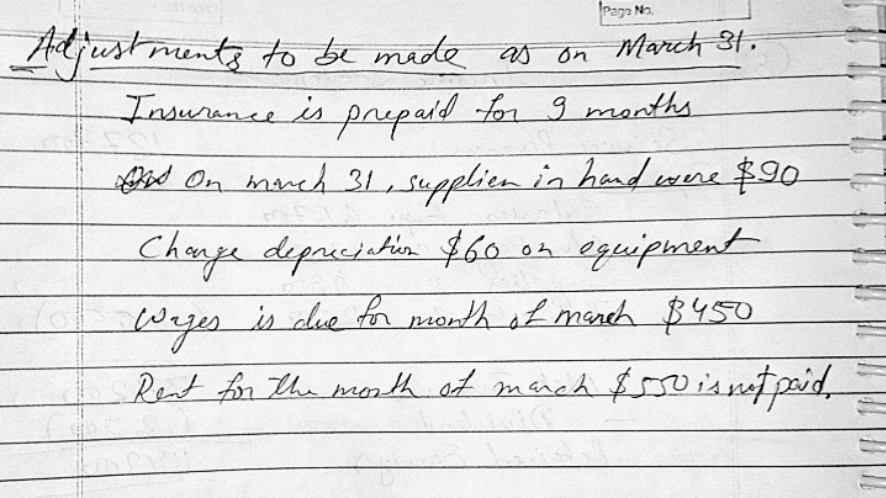 Page No.
Adjustments to be made as on March 31.
Insurance is prepaid for 9 months
On march 31, supplies in hand were $90
Charge depreciation $60 on equipment
Wages is due for month of march $450
Rent for the month of march $550 is not paid.